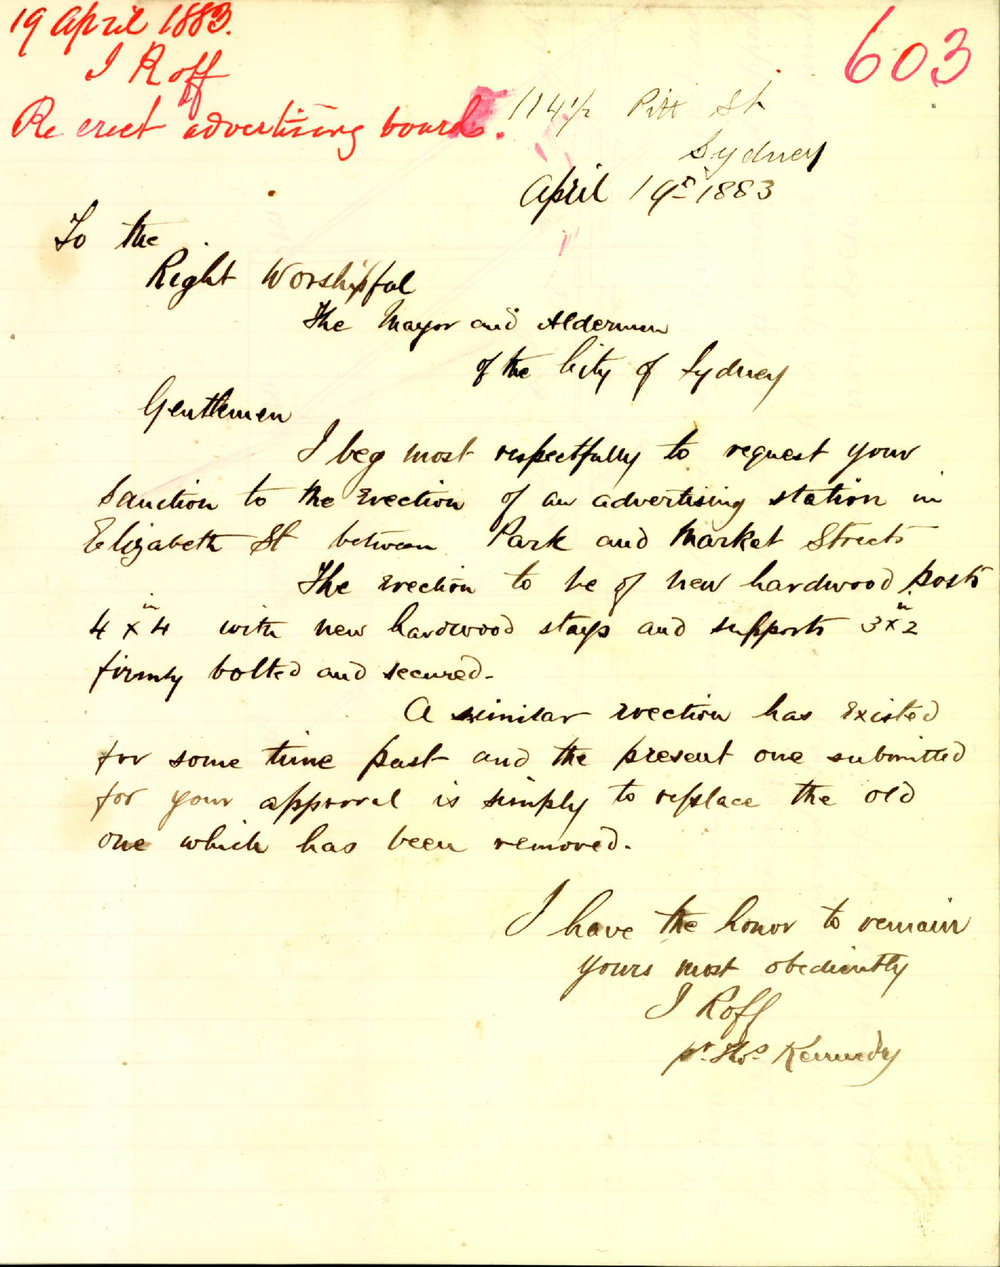 19 April 1883.
J Roff
Re erect advertising board.
603
114 1/2 Pitt St
Sydney
April 19th 1883
To the
Right Worshipful
The Mayor and Aldermen
of the City of Sydney
Gentlemen
I beg most respectfully to request your
Sanction to the Erection of an advertising station in
Elizabeth St between Park and Market Streets
The Erection to be of new hardwood posts
4 x 4 in with new hardwood stays and supports 3 x 2 in
firmly bolted and secured.
A similar Erection has Existed
for some time past and the present one submitted
for your approval is simply to replace the old
one which has been removed.
I have the honor to remain
yours most obediently
J Roff
pr Thos Kennedy